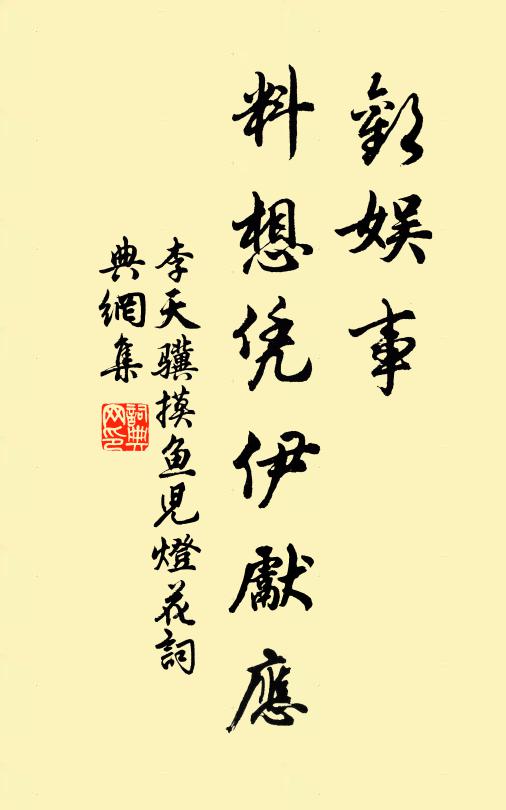 歡娛事
料想凭伊獻應
李天驥摸魚兒燈花詞
典網集
詞典
网印